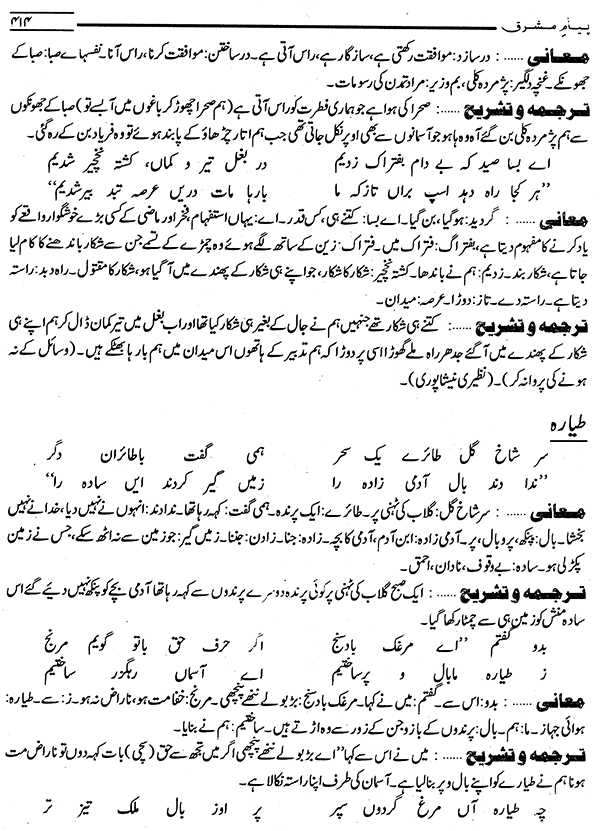 پیامِ مشرق ۴۱۴
معانی ...... : درسازد: موافقت رکھتی ہے، سازگار ہے، راس آتی ہے۔ درساختن: موافقت کرنا، راس آنا۔ نفسہائے صبا: صبا کے
جھونکے۔ غنچۂ دلگیر: پژمردہ کلی، بم و زیر: مراد تمدن کی رسومات۔
ترجمہ و تشریح ......: صحرا کی ہوا ہے جو ہماری فطرت کو راس آتی ہے (ہم صحرا چھوڑ کر باغوں میں آبسے تو) صبا کے جھونکوں
سے ہم پژمردہ کلی بن گئے آہ وہ ہا ہو جو آسمانوں سے بھی اوپر نکل جاتی تھی جب ہم اتار چڑھاؤ کے پابند ہوئے تو وہ فریاد بن کے رہ گئی۔
اے بسا صید کہ بے دام بفتراک زدیم در بغل تیر و کماں، کشتہ نخچیر شدیم
”ہر کجا راہ دہد اسپ براں تاز کہ ما بارہا مات دریں عرصہ تبد بیر شدیم“
معانی ...... : گردید: ہوگیا، بن گیا۔ اے بسا: کتنے ہی، کس قدر۔ اے: یہاں استفہام فخر اور ماضی کے کسی بڑے خوشگوار واقعے کو
یاد کرنے کا مفہوم دیتا ہے، بفتراک: فتراک میں۔ فتراک: زین کے ساتھ لگے ہوئے وہ چمڑے کے تسمے جن سے شکار باندھنے کا کام لیا
جاتا ہے، شکار بند۔ زدیم: ہم نے باندھا۔ کشتۂ نخچیر: شکار کا شکار، جو اپنے ہی شکار کے پھندے میں آ گیا ہو، شکار کا مقتول۔ راہ دہد: راستہ
دیتا ہے۔ راستہ دے۔ تاز: دوڑا۔ عرصہ: میدان۔
ترجمہ و تشریح ......: کتنے ہی شکار تھے جنہیں ہم نے جال کے بغیر ہی شکار کیا تھا اور اب بغل میں تیر کمان ڈال کر ہم اپنے ہی
شکار کے پھندے میں آ گئے جدھر راہ ملے گھوڑا اسی پر دوڑا کہ ہم تدبیر کے ہاتھوں اس میدان میں ہم بار ہا بھٹکے ہیں۔ (وسائل کے نہ
ہونے کی پروا نہ کر)۔ (نظیری نیشاپوری)۔
طیارہ
سر شاخ گل طائرے یک سحر ہمی گفت باطائران دگر
”ندا دند بال آدمی زادہ را زمیں گیر کردند ایں سادہ را“
معانی ...... : سر شاخ گل: گلاب کی ٹہنی پر۔ طائرے: ایک پرندہ۔ ہمی گفت: کہہ رہا تھا۔ ندادند: انہوں نے نہیں دیا، خدا نے نہیں
بخشا۔ بال: پنکھ، پر و بال، پر۔ آدمی زادہ: ابن آدم، آدمی کا بچہ۔ زادہ: جنا۔ زادن: جننا۔ زمیں گیر: جو زمین سے نہ اٹھ سکے، جس نے زمین
پکڑ لی ہو۔ سادہ: بے وقوف، نادان، احمق۔
ترجمہ و تشریح ......: ایک صبح گلاب کی ٹہنی پر کوئی پرندہ دوسرے پرندوں سے کہہ رہا تھا آدمی بچے کو پنکھ نہیں دیئے گئے اس
سادہ منش کو زمین ہی سے چمٹا رکھا گیا۔
بدو گفتم ”اے مرغک بادسنج اگر حرف حق باتو گویم مرنج
ز طیارہ مابال و پرساختیم اے آسماں رہگزر ساختیم
معانی ...... : بدو: اس سے۔ گفتم: میں نے کہا۔ مرغک بادسنج: بڑ بولے ننھے پنچھی۔ مرنج: خفا مت ہو، ناراض نہ ہو۔ ز: سے۔ طیارہ:
ہوائی جہاز۔ ما: ہم۔ بال: پرندوں کے بازو جن کے زور سے وہ اڑتے ہیں۔ ساختیم: ہم نے بنایا۔
ترجمہ و تشریح ......: میں نے اس سے کہا ”اے بڑ بولے ننھے پنچھی اگر میں تجھ سے حق (سچی) بات کہہ دوں تو ناراض مت
ہونا ہم نے طیارے کو اپنے بال و پر بنا لیا ہے۔ آسمان کی طرف اپنا راستہ نکالا ہے۔
چہ طیارہ آں مرغ گردوں سپر پر اوز بال ملک تیز تر